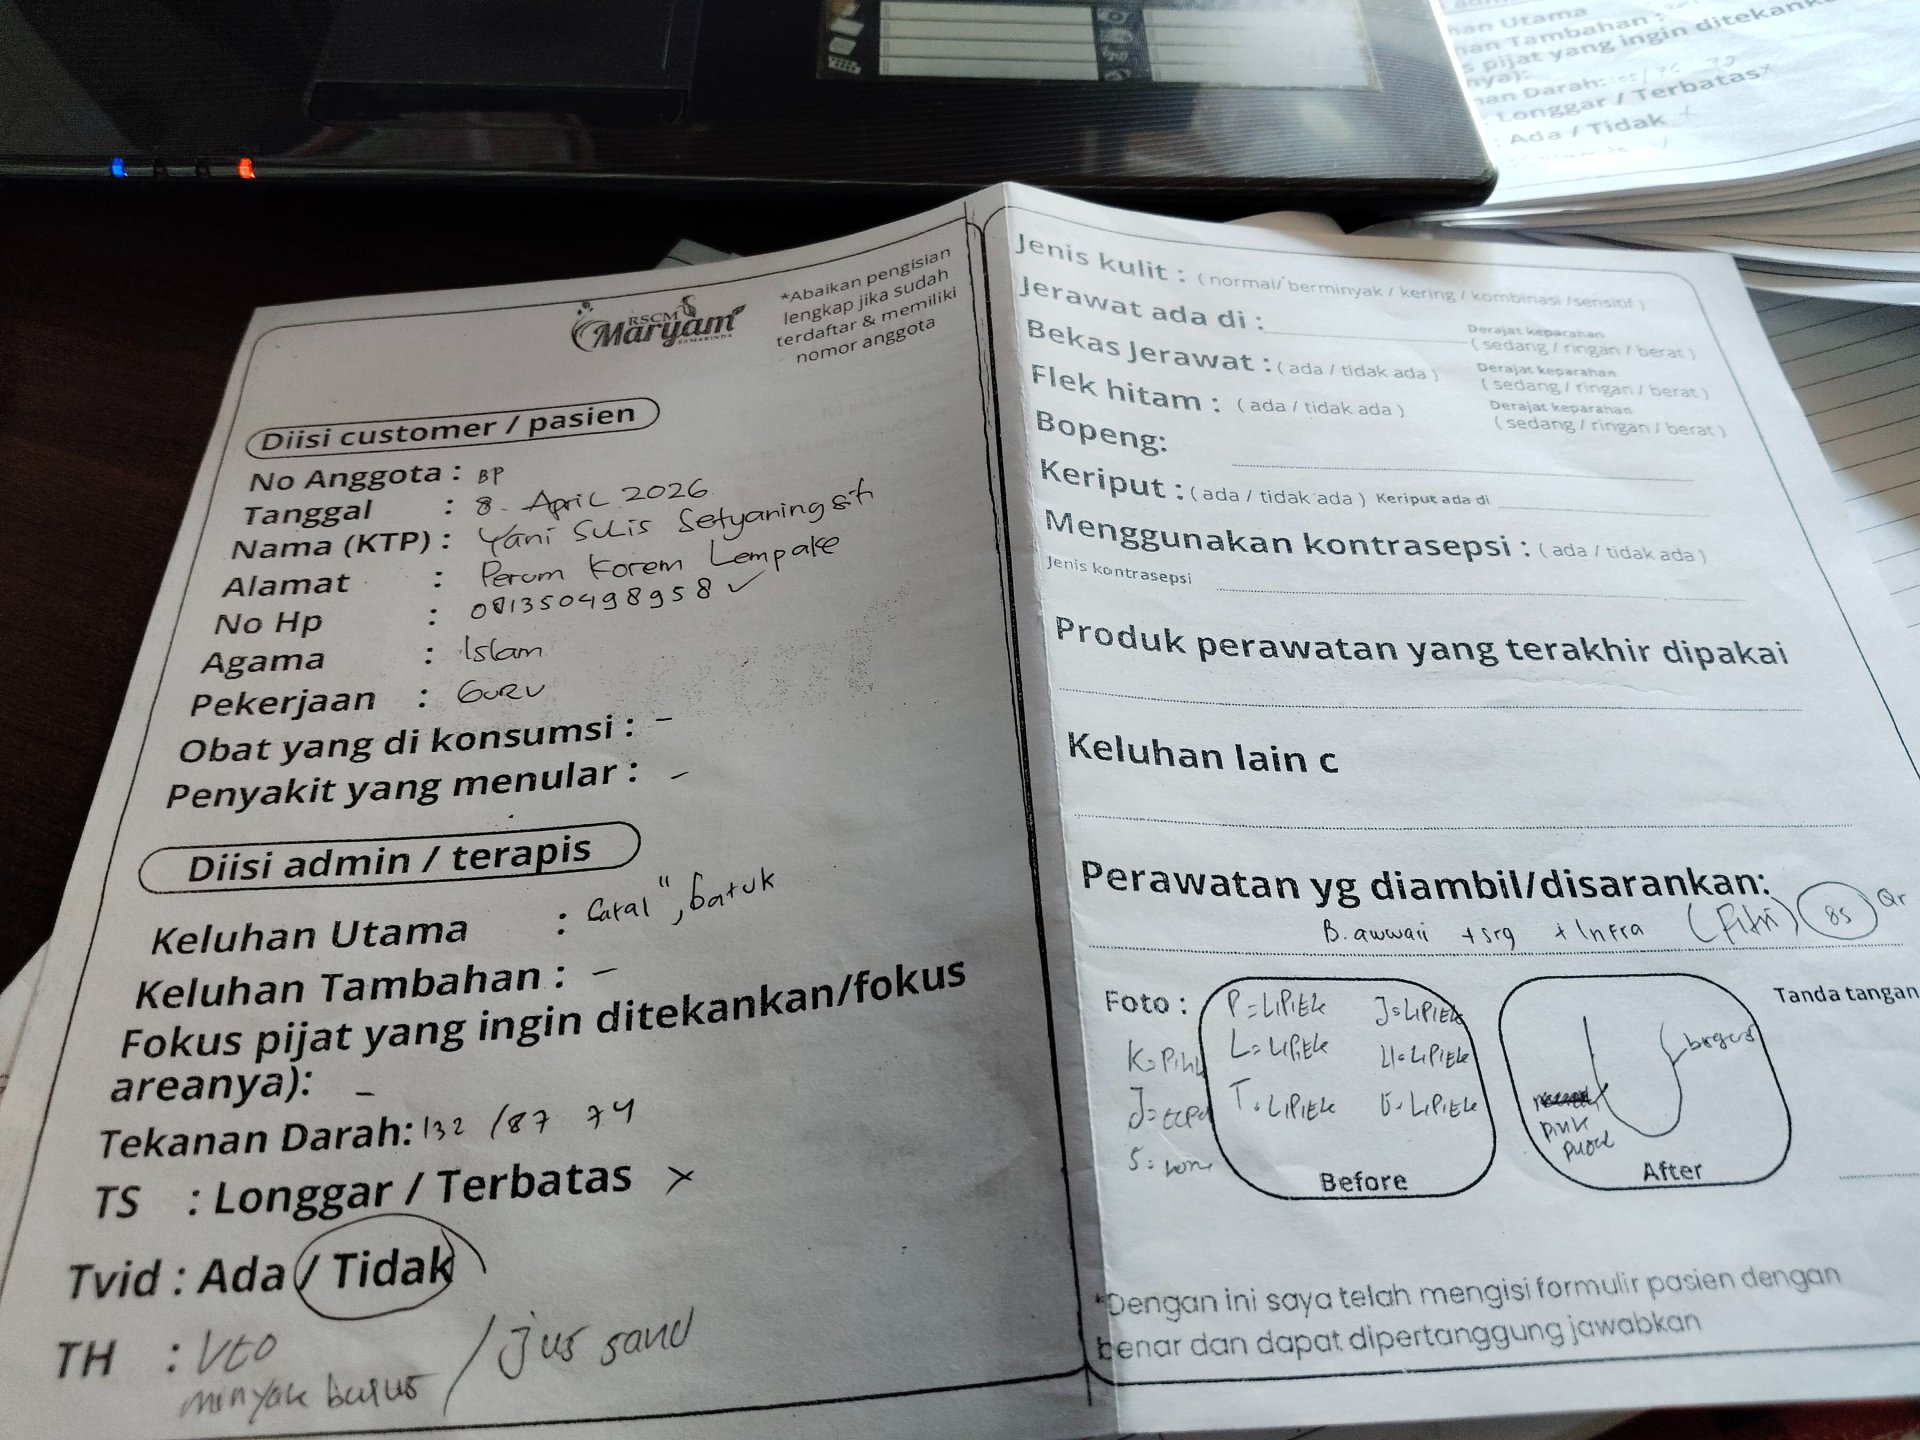 RSCM
Maryam
SAMARINDA
*Abaikan pengisian
lengkap jika sudah
terdaftar & memiliki
nomor anggota
Diisi customer / pasien
No Anggota : BP
Tanggal : 8 April 2026
Nama (KTP) : Yani Sulis Setyaningsih
Alamat : Perum Korem Lempake
No Hp : 081350498958 ✓
Agama : Islam
Pekerjaan : GURU
Obat yang di konsumsi : -
Penyakit yang menular : -
Diisi admin / terapis
Keluhan Utama : , batuk
Keluhan Tambahan : -
Fokus pijat yang ingin ditekankan/fokus
areanya): -
Tekanan Darah: 132 /87 74
TS : Longgar / Terbatas x
Tvid : Ada / Tidak
TH : VCO
minyak / Jus
Jenis kulit : ( normal/ berminyak / kering / kombinasi /sensitif )
Jerawat ada di : Derajat keparahan
( sedang / ringan / berat )
Bekas Jerawat : ( ada / tidak ada ) Derajat keparahan
( sedang / ringan / berat )
Flek hitam : ( ada / tidak ada ) Derajat keparahan
( sedang / ringan / berat )
Bopeng:
Keriput : ( ada / tidak ada ) Keriput ada di
Menggunakan kontrasepsi : ( ada / tidak ada )
Jenis kontrasepsi
Produk perawatan yang terakhir dipakai
Keluhan lain c
Perawatan yg diambil/disarankan:
B. awwari + srg + Infra (Fitri) 85 Qr
Foto :
Before
After
pink
Tanda tangan
*Dengan ini saya telah mengisi formulir pasien dengan
benar dan dapat dipertanggung jawabkan
han Utama
han Tambahan :
s pijat yang ingin ditekank
nya):
nan Darah:
Longgar / Terbatas x
: Ada / Tidak